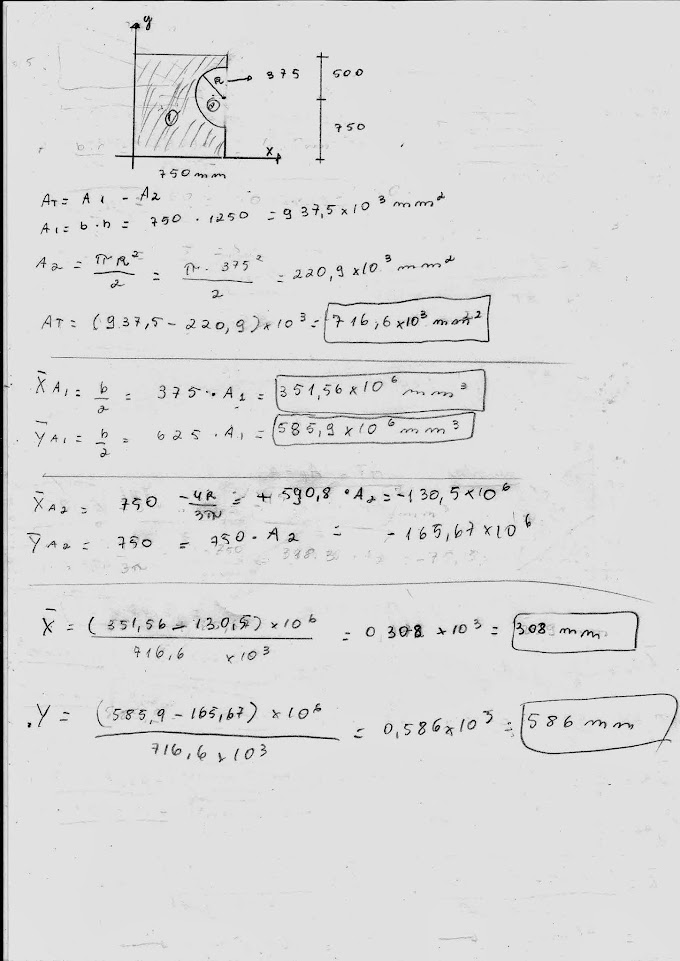 y
R
375
500
2
1
750
x
750 mm
AT = A1 - A2
A1 = b · h = 750 · 1250 = 937,5 x 10³ mm²
A2 = πR²/2 = π · 375²/2 = 220,9 x 10³ mm²
AT = (937,5 - 220,9) x 10³ = 716,6 x 10³ mm²
X̄A1 = b/2 = 375 · A1 = 351,56 x 10⁶ mm³
ȲA1 = b/2 = 625 · A1 = 585,9 x 10⁶ mm³
X̄A2 = 750 - 4R/3π = + 590,8 · A2 = -130,5 x 10⁶
ȲA2 = 750 = 750 · A2 = -165,67 x 10⁶
X̄ = (351,56 - 130,5) x 10⁶ / 716,6 x 10³ = 0 308 x 10³ = 308 mm
Y = (585,9 - 165,67) x 10⁶ / 716,6 x 10³ = 0,586 x 10³ = 586 mm